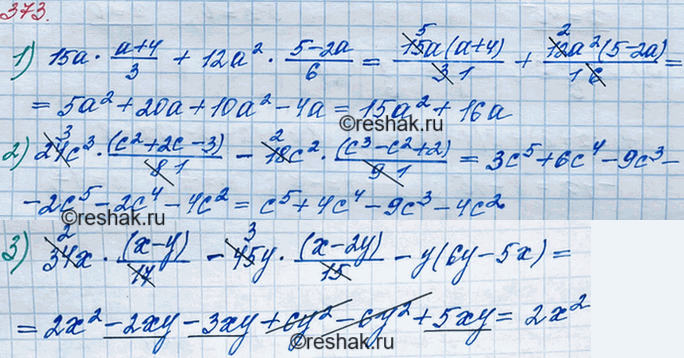 373.
1) 15a · (a+4)/3 + 12a² · (5-2a)/6 = 15a(a+4)/3 + 12a²(5-2a)/6 = 5 1 2 1
= 5a² + 20a + 10a² - 4a = 15a² + 16a
©reshak.ru
2) 24c³ · (c²+2c-3)/8 - 18c² · (c³-c²+2)/9 = 3c⁵ + 6c⁴ - 9c³ - 3 1 2 1
- 2c⁵ - 2c⁴ - 4c² = c⁵ + 4c⁴ - 9c³ - 4c²
©reshak.ru
3) 34x · (x-y)/17 - 45y · (x-2y)/15 - y(6y-5x) = 2 3
= 2x² - 2xy - 3xy + 6y² - 6y² + 5xy = 2x²
©reshak.ru